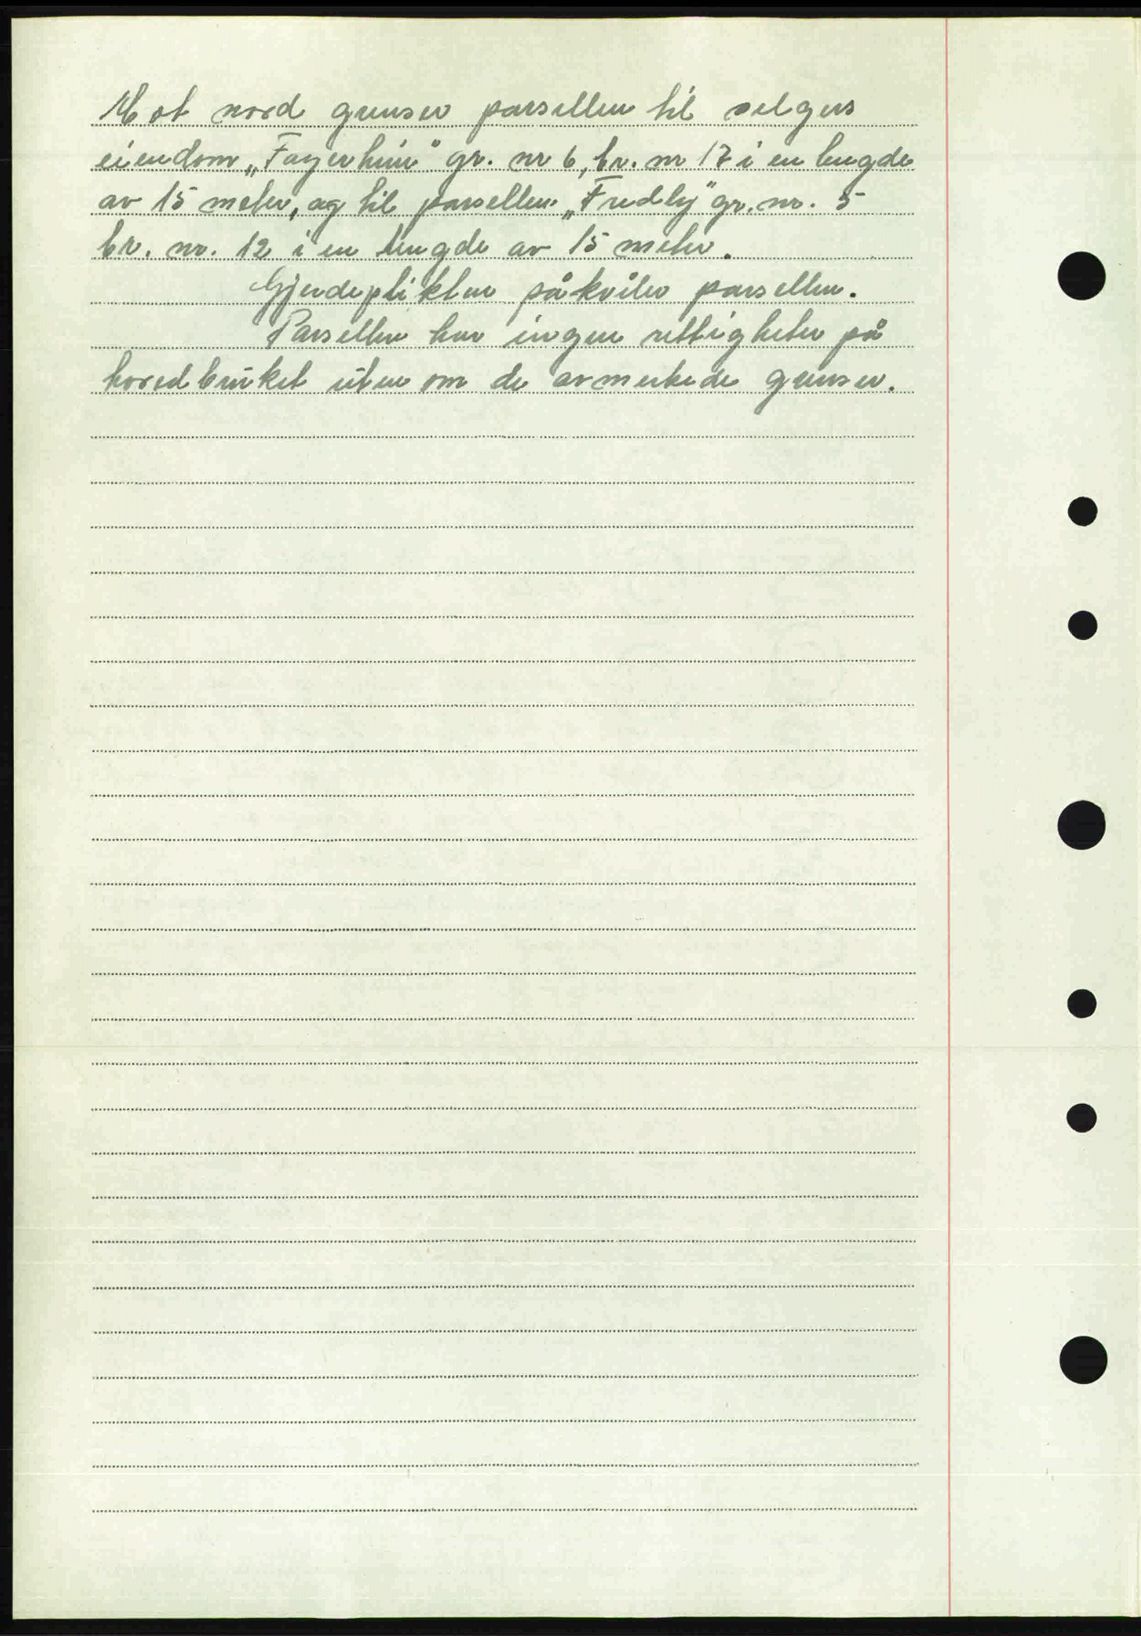 Mot nord grenser parsellen til selgers
eiendom „Fagerheim" gr. nr 6, br. nr 17 i en lengde
av 15 meter, og til parsellen „Fredly" gr. nr. 5
br. nr. 12 i en lengde av 15 meter.
Gjerdeplikten påkviler parsellen.
Parsellen har ingen rettigheter på
hovedbruket uten om de avmerkede grenser.